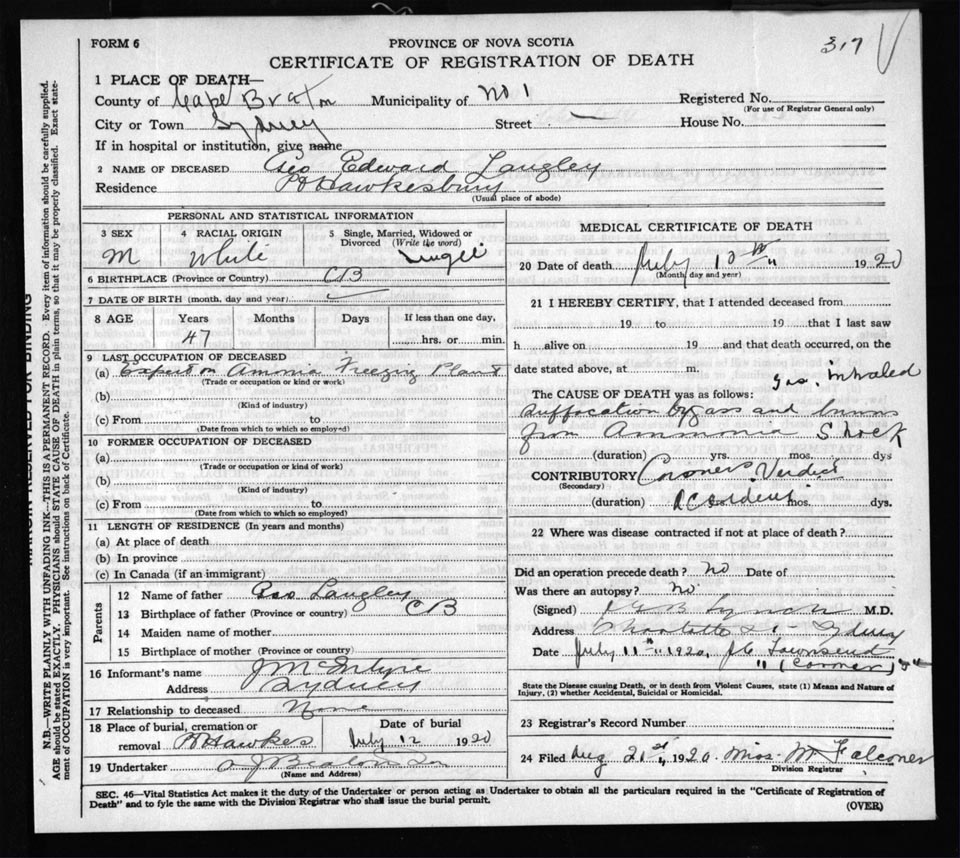 FORM 6
PROVINCE OF NOVA SCOTIA
317
CERTIFICATE OF REGISTRATION OF DEATH
1 PLACE OF DEATH—
County of Cape Breton Municipality of No 1 Registered No.
(For use of Registrar General only)
City or Town Sydney Street — House No.
If in hospital or institution, give name
2 NAME OF DECEASED Geo Edward Langley
Residence Pt Hawkesbury
(Usual place of abode)
PERSONAL AND STATISTICAL INFORMATION
3 SEX 4 RACIAL ORIGIN 5 Single, Married, Widowed or Divorced (Write the word)
M White Single
6 BIRTHPLACE (Province or Country) CB
7 DATE OF BIRTH (month, day and year)
8 AGE Years Months Days If less than one day,
47 hrs. or min.
9 LAST OCCUPATION OF DECEASED
(a) Expert on Amonia Freezing Plant
(Trade or occupation or kind or work)
(b)
(Kind of industry)
(c) From to
(Date from which to which so employed)
10 FORMER OCCUPATION OF DECEASED
(a)
(Trade or occupation or kind of work)
(b)
(Kind of industry)
(c) From to
(Date from which to which so employed)
11 LENGTH OF RESIDENCE (In years and months)
(a) At place of death
(b) In province
(c) In Canada (if an immigrant)
Parents
12 Name of father Geo Langley
13 Birthplace of father (Province or country) CB
14 Maiden name of mother
15 Birthplace of mother (Province or country)
16 Informant's name J McIntyre
Address Sydney
17 Relationship to deceased None
18 Place of burial, cremation or removal Pt Hawkes
Date of burial
July 12 1920
19 Undertaker A J Beaton
(Name and Address)
MEDICAL CERTIFICATE OF DEATH
20 Date of death July 10th 1920
(Month, day and year)
21 I HEREBY CERTIFY, that I attended deceased from
19 to 19 that I last saw
h alive on 19 and that death occurred, on the
date stated above, at m.
Gas inhaled
The CAUSE OF DEATH was as follows:
Suffocation by gass and burns
from Ammonia Shock
(duration) yrs. mos. dys
CONTRIBUTORY Coroners Verdict
(Secondary)
(duration) Accident mos. dys.
22 Where was disease contracted if not at place of death?
Did an operation precede death? No Date of
Was there an autopsy? No
(Signed) Lynch M.D.
Address Charlotte St - Sydney
Date July 11th 1920. Townsend
" (Coroner)
State the Disease causing Death, or in death from Violent Causes, state (1) Means and Nature of
Injury, (2) whether Accidental, Suicidal or Homicidal.
23 Registrar's Record Number
24 Filed Aug 21st 1920. Miss M Falconer
Division Registrar
SEC. 46—Vital Statistics Act makes it the duty of the Undertaker or person acting as Undertaker to obtain all the particulars required in the "Certificate of Registration of
Death" and to fyle the same with the Division Registrar who shall issue the burial permit.
(OVER)
MARGIN RESERVED FOR BINDING
N.B.—WRITE PLAINLY WITH UNFADING INK—THIS IS A PERMANENT RECORD. Every item of information should be carefully supplied.
AGE should be stated EXACTLY. PHYSICIANS should STATE CAUSE OF DEATH in plain terms, so that it may be properly classified. Exact state-
ment of OCCUPATION is very important. See instructions on back of Certificate.